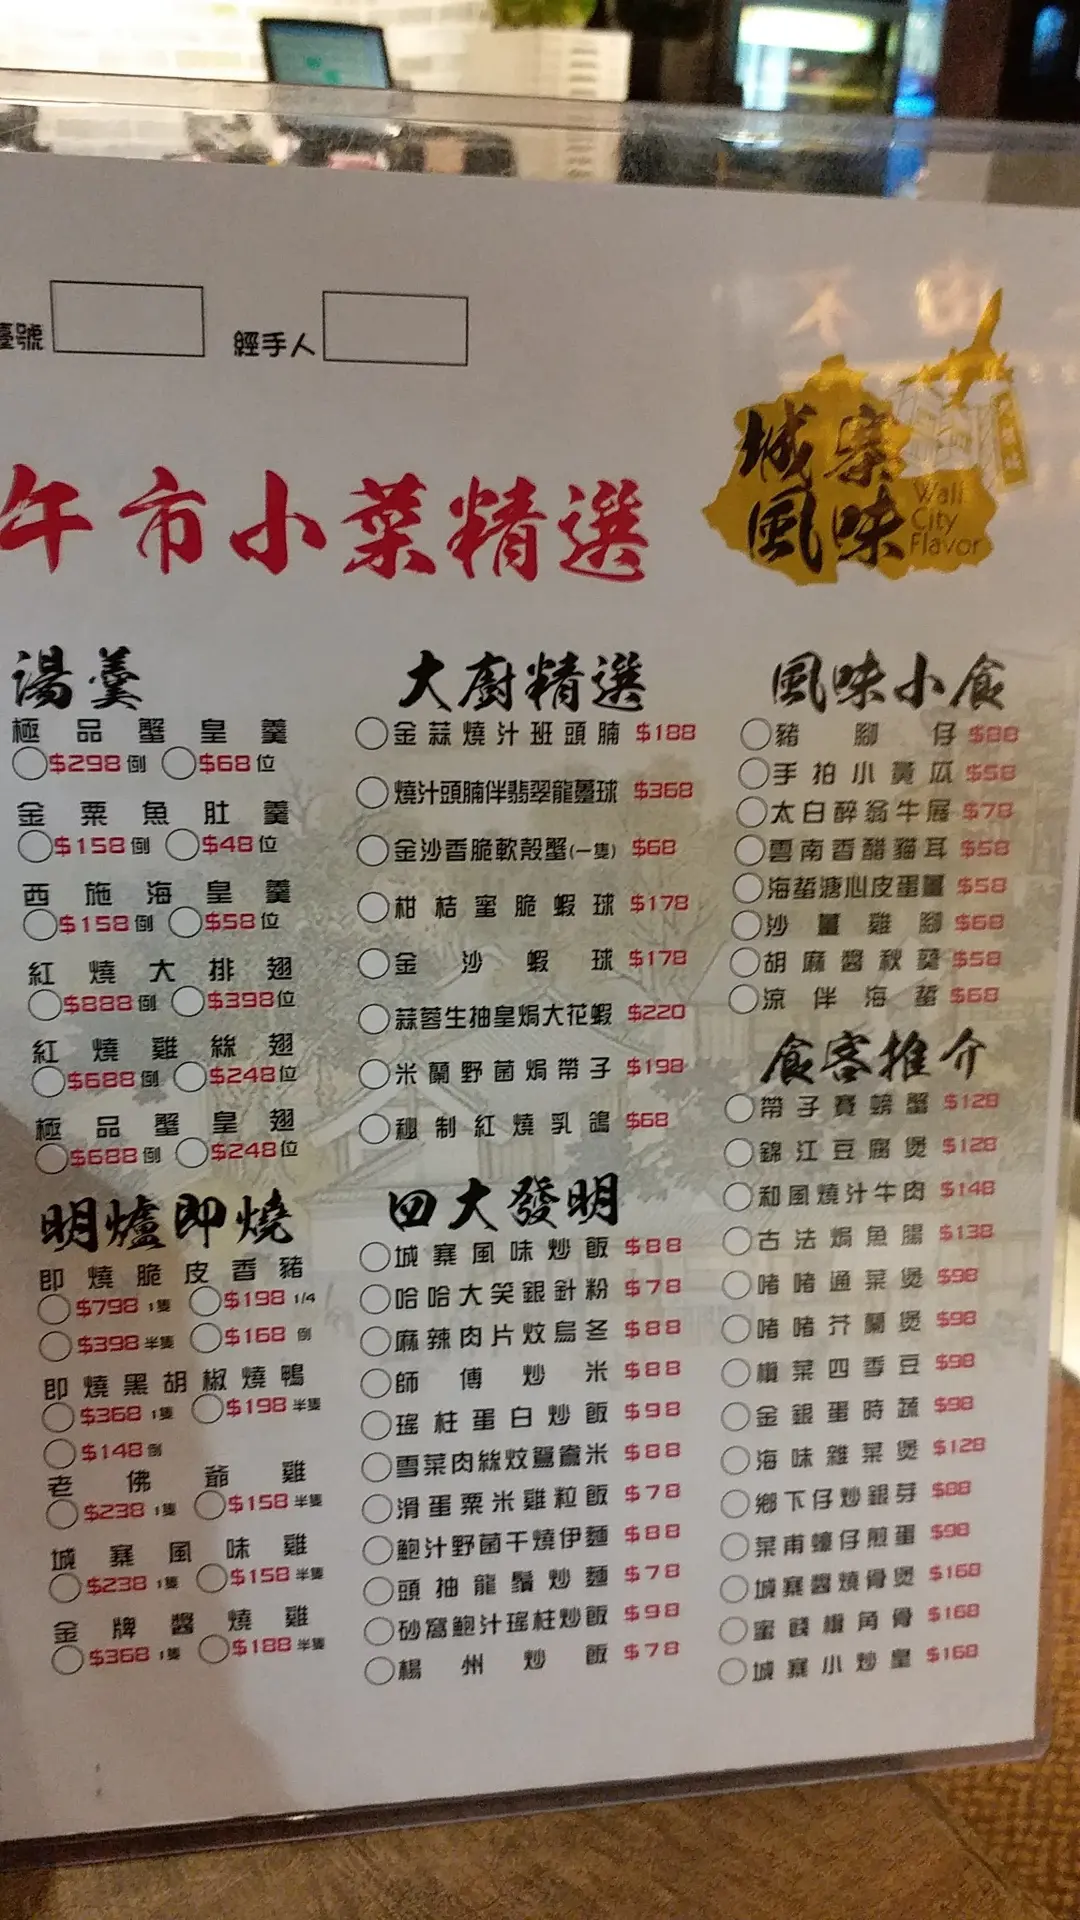 檯號
經手人
城寨風味
Wall
City
Flavor
午市小菜精選
湯羹
極品蟹皇羹
$298例 $68位
金粟魚肚羹
$158例 $48位
西施海皇羹
$158例 $58位
紅燒大排翅
$888例 $398位
紅燒雞絲翅
$688例 $248位
極品蟹皇翅
$688例 $248位
明爐即燒
即燒脆皮香豬
$798 1隻 $198 1/4
$398 半隻 $168 例
即燒黑胡椒燒鴨
$368 1隻 $198 半隻
$148例
老佛爺雞
$238 1隻 $158 半隻
城寨風味雞
$238 1隻 $158 半隻
金牌醬燒雞
$368 1隻 $188 半隻
大廚精選
金蒜燒汁班頭腩 $188
燒汁頭腩伴翡翠龍躉球 $368
金沙香脆軟殼蟹(一隻) $68
柑桔蜜脆蝦球 $178
金沙蝦球 $178
蒜蓉生抽皇焗大花蝦 $220
米蘭野菌焗帶子 $198
秘制紅燒乳鴿 $68
四大發明
城寨風味炒飯 $88
哈哈大笑銀針粉 $78
麻辣肉片炆烏冬 $88
師傅炒米 $88
瑤柱蛋白炒飯 $98
雪菜肉絲炆鴛鴦米 $88
滑蛋粟米雞粒飯 $78
鮑汁野菌干燒伊麵 $88
頭抽龍鬚炒麵 $78
砂窩鮑汁瑤柱炒飯 $98
楊州炒飯 $78
風味小食
豬腳仔 $88
手拍小黃瓜 $58
太白醉翁牛展 $78
雲南香醋貓耳 $58
海蜇溏心皮蛋薑 $58
沙薑雞腳 $68
胡麻醬秋葵 $58
涼伴海蜇 $68
食客推介
帶子賽螃蟹 $128
錦江豆腐煲 $128
和風燒汁牛肉 $148
古法焗魚腸 $138
啫啫通菜煲 $98
啫啫芥蘭煲 $98
欖菜四季豆 $98
金銀蛋時蔬 $98
海味雜菜煲 $128
鄉下仔炒銀芽 $88
菜甫蠔仔煎蛋 $98
城寨醬燒骨煲 $168
蜜餞欖角骨 $168
城寨小炒皇 $168